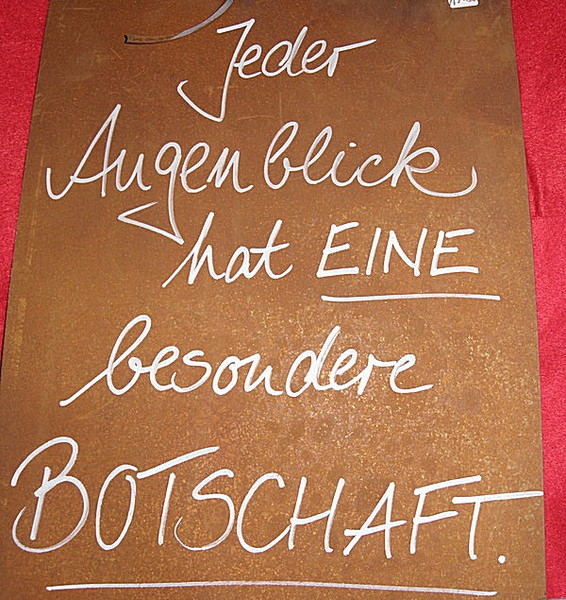 Jeder
Augenblick
hat EINE
besondere
BOTSCHAFT.